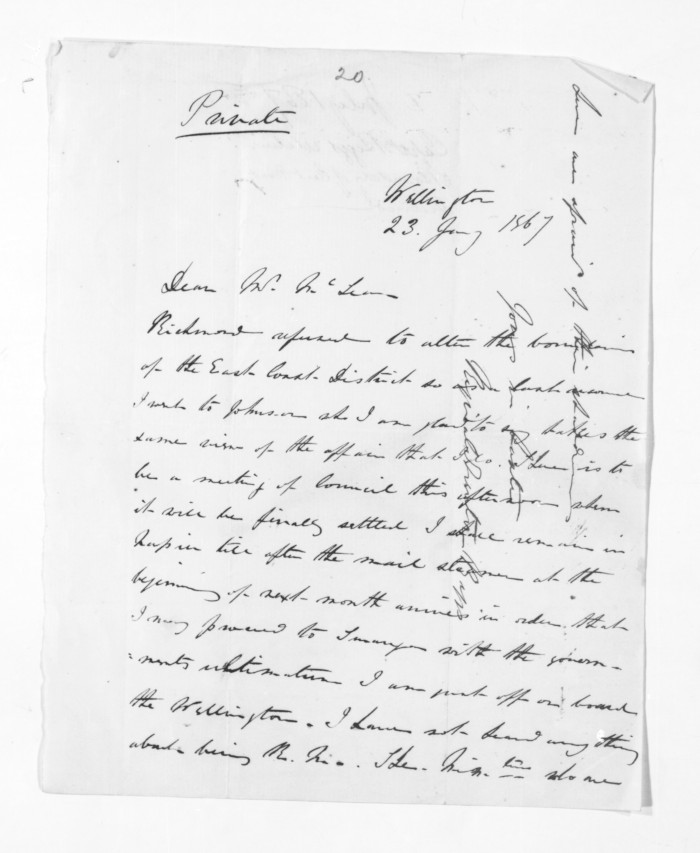 20.
Private
Wellington
23. Jany 1867
Dear Mr. McLean
Richmond refused to alter the boundaries
of the East Coast District so as a last resource
I went to Johnson who I am glad to say takes the
same view of the affair that I do. There is to
be a meeting of Council this afternoon when
it will be finally settled I shall remain in
Napier till after the mail steamer at the
beginning of next month arrives in order that
I may proceed to with the govern-
ments ultimatum I am just off on board
the Wellington. I have not heard anything
about being R. M. The who are
are afraid of their
Yours in haste
Reginald Biggs